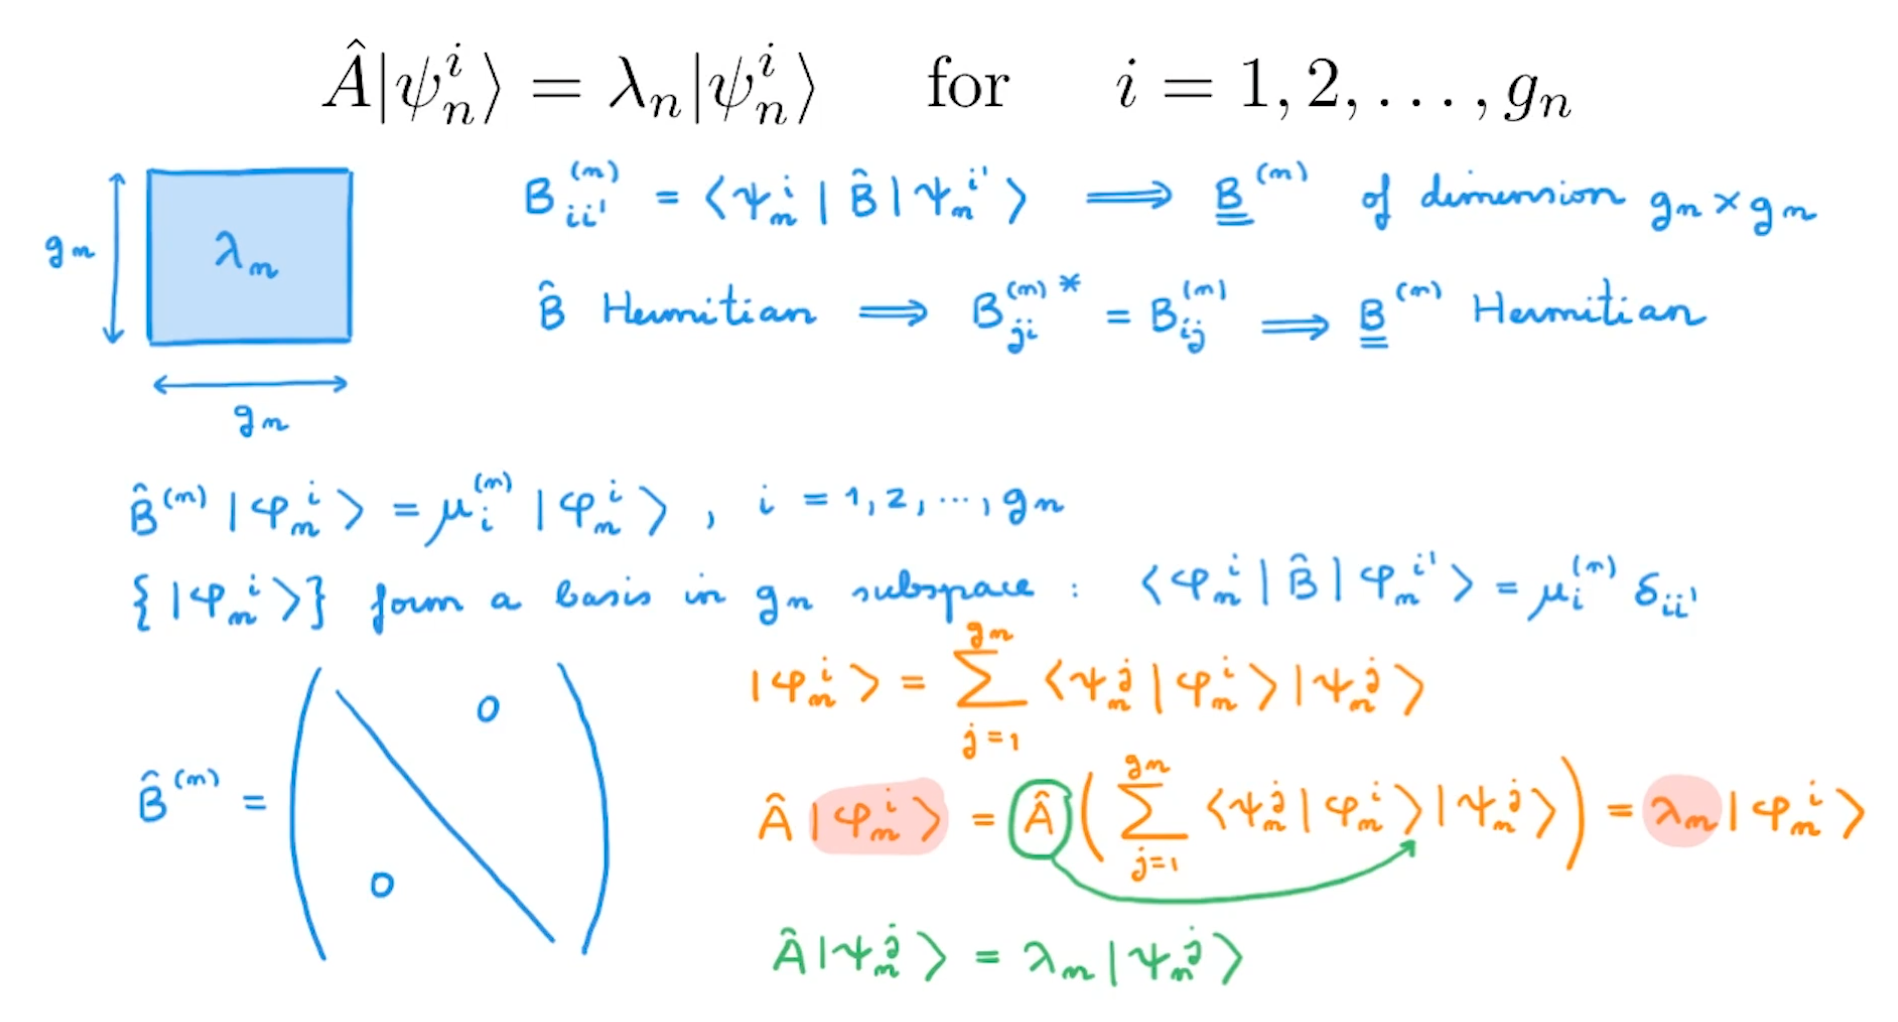 Â|ψₙⁱ⟩ = λₙ|ψₙⁱ⟩ for i = 1, 2, . . . , gₙ
gₙ
λₙ
gₙ
B_{ii'}^{(n)} = ⟨ψₙ^i | B̂ | ψₙ^{i'}⟩ ⟹ B̳^{(n)} of dimension gₙ × gₙ
B̂ Hermitian ⟹ B_{ji}^{(n)*} = B_{ij}^{(n)} ⟹ B̳^{(n)} Hermitian
B̂^{(n)} | φₙ^i ⟩ = μ_i^{(n)} | φₙ^i ⟩ , i = 1, 2, ..., gₙ
{ | φₙ^i ⟩ } form a basis in gₙ subspace : ⟨ φₙ^i | B̂ | φₙ^{i'} ⟩ = μ_i^{(n)} δ_{ii'}
| φₙ^i ⟩ = ∑_{j=1}^{gₙ} ⟨ ψₙ^j | φₙ^i ⟩ | ψₙ^j ⟩
B̂^{(n)} = ( 0 0 )
Â | φₙ^i ⟩ = Â ( ∑_{j=1}^{gₙ} ⟨ ψₙ^j | φₙ^i ⟩ | ψₙ^j ⟩ ) = λₙ | φₙ^i ⟩
Â | ψₙ^j ⟩ = λₙ | ψₙ^j ⟩